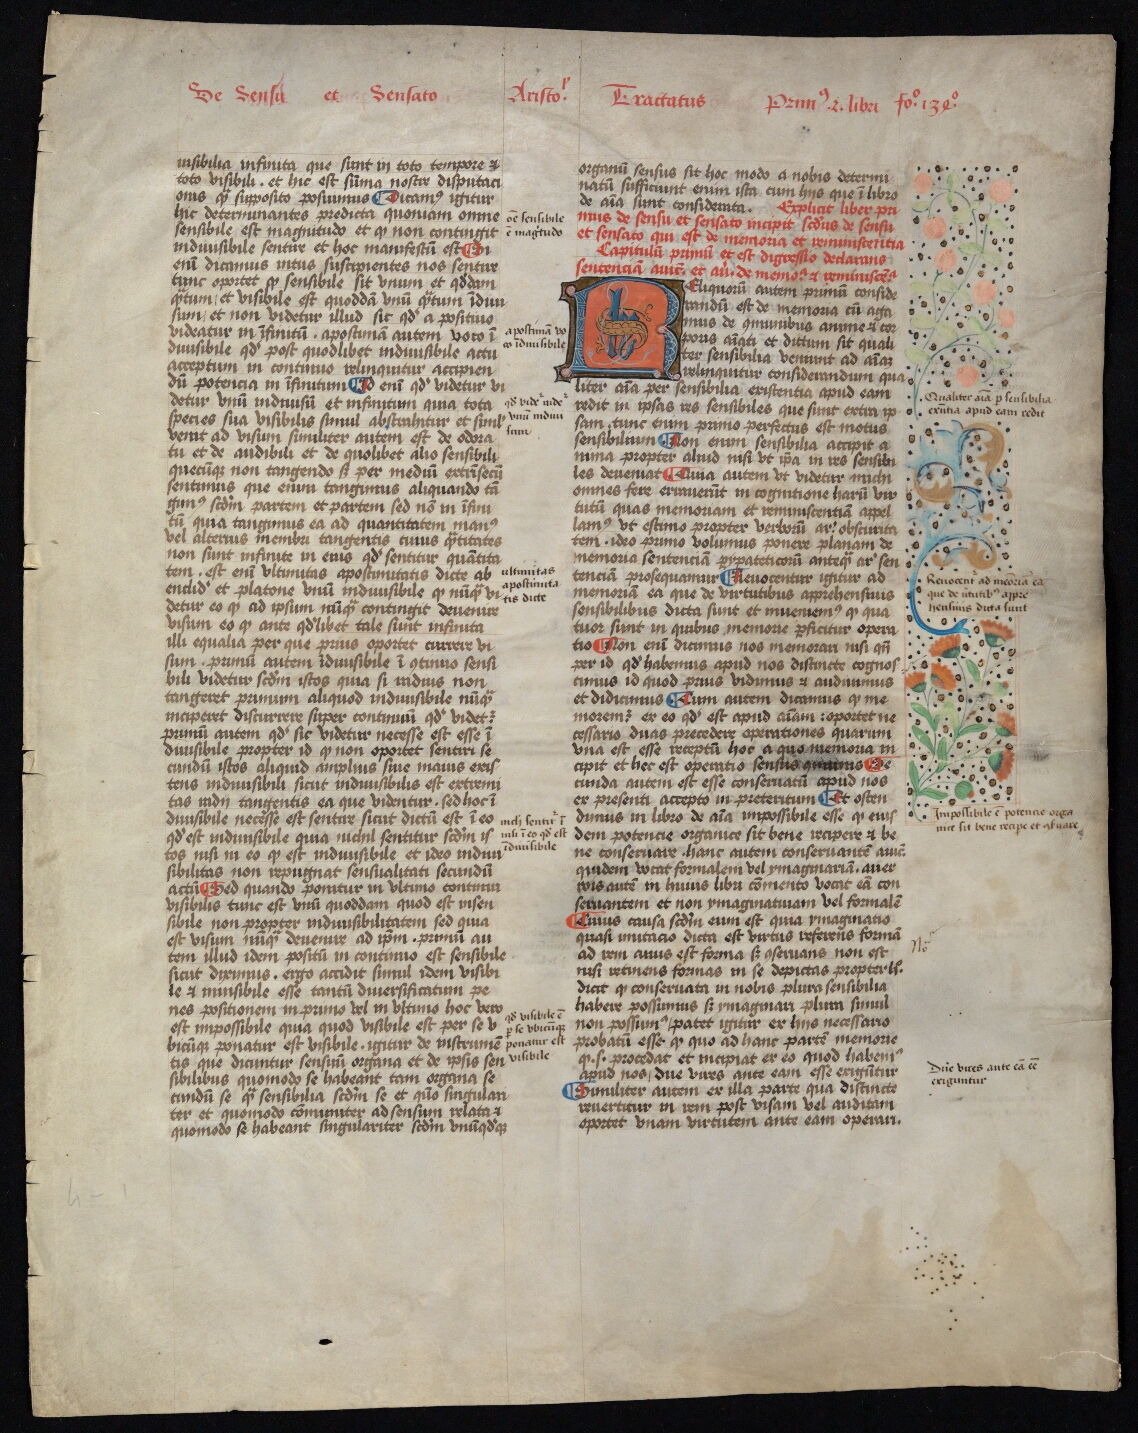 De Sensu et Sensato Aristo. Tractatus Primꝰ .2. libri fo.º 139.º
uisibilia infinita que sunt in toto tempore ⁊
toto visibili . et hic est sūma nostre disputaci
onis q̄ supposito posuimus Dicamꝰ igitur
hic determinantes predicta quoniam omne
sensibile est magnitudo et ꝙ non contingit
indiuisibile sentire et hoc manifestū est Si
enī dicamus intus suscipientes nos sentire
tunc oportet ꝙ sensibile sit vnum et qd̄dam
q̄tum et visibile est quoddā vnū q̄tum īdiui
sum et non videtur illud sit qd̄ a positiuo
videatur in īfinitū . apostimā autem voco ī
diuisibile qd̄ post quodlibet indiuisibile actu
acceptum in continuo relinquitur accipien
dū potencia in īfinitum Id enī qd̄ videtur vi
detur vnū indiuisū et infinitum quia tota
species sua visibilis simul abstrahitur et simul
venit ad visum similiter autem est de odora
tu et de audibili et de quolibet alio sensibili
quecūqꝫ non tangendo sꝫ per mediū extrīsecū
sentimus que enim tangimus aliquando tā
gimꝰ scdm̄ partem et partem sed nō in īfini
tū quia tangimus ea ad quantitatem manꝰ
vel alterius membri tangentis cuius q̄titates
non sunt infinite in eius qd̄ sentitur quātita
tem . est enī vltimitas apostimitatis dicte ab
enclid̄ et platone vnū indiuisibile ꝙ nūq̄ vi
detur eo ꝙ ad ipsum nūq̄ contingit deuenire
visum eo ꝙ ante qd̄libet tale sunt infinita
illi equalia per que prius oportet currere vi
sum . primū autem īdiuisibile ī ꝯtinuo sensi
bili videtur scdm̄ istos quia si radius non
tangeret primum aliquod indiuisibile nūq̄
inciperet discurrere super continuū qd̄ videtꝛ
primū autem qd̄ sic videtur necesse est esse ī
diuisibile propter id ꝙ non oportet sentiri se
cundū istos aliquid amplius siue maius exis
tens indiuisibili sicut indiuisibilis est extremi
tas radii tangentis ea que videntur . sed hoc ī
diuisibile necesse est sentire sicut dictū est ī eo
qd̄ est indiuisibile quia nichil sentitur scdm̄ is
tos nisi in eo ꝙ est indiuisibile et ideo indiui
sibilitas non repugnat sensualitati secundū
actū Sed quando ponitur in vltimo continui
visibilis tunc est vnū quoddam quod est insen
sibile non propter indiuisibilitatem sed quia
est visum nūq̄ deuenire ad ip̄m . primū au
tem illud idem positū in continuo est sensibile
sicut diximus . ergo accidit simul idem visibi
le ⁊ inuisibile esse tantū diuersificatum pe
nes positionem in primo vel in vltimo hoc vero
est impossibile quia quod visibile est per se v
bicūqꝫ ponatur est visibile . igitur de instrumē
tis que dicuntur sensuū organa et de ipsis sen
sibilibus quomodo se habeant tam organa se
cundū se q̄ sensibilia scdm̄ se et quō singulari
ter et quomodo cōmuniter ad sensum relata ⁊
quomodo se habeant singulariter scdm̄ vnūqd̄qꝫ
oē sensibile
ē magitudo
apostimā vo
co īdiuisibile
qd̄ videt̄ videt̄
vnū indiui
sum
vltimitas
apostimita
tis dicte
nich̄ sentit̄ ī
nisi ī eo qd̄ est
īdiuisibile
qd̄ visibile ē
ꝑ se vbicūqꝫ
ponatur est
visibile
organū sensus sit hoc modo a nobis determi
natū sufficiunt enim ista cum hiis que ī libro
de aīa sunt considerata . Explicit liber pri
mus de sensu et sensato incipit scdus de sensu
et sensato qui est de memoria et reminiscentia
Capitulū primū et est digressio declarans
sentenciā auic̄. et au̅. de memoꝛ̄ ⁊ reminiscēꝰ
Reliquorū autem primū conside
randū est de memoria cū aga
mus de ꝯmunibus anime ⁊ cor
poris aīati et dictum sit quali
ter sensibilia veniunt ad aīaꝫ
relinquitur considerandum qua
liter aīa per sensibilia existentia apud eam
redit in ipsas res sensibiles que sunt extra ip
sam . tunc enim primo perfectus est motus
sensibilium Non enim sensibilia accipit a
nima propter aliud nisi vt ip̄a in res sensibi
les deueniat Quia autem vt videtur michi
omnes fere errauerūt in cognitione harū vir
tutū quas memoriam et reminiscentiā appel
lamꝰ vt estimo propter verborū ar̄. obscurita
tem . ideo primo volumus ponere planam de
memoria sentenciā pypateticorū anteq̄ ar̄ sen
tenciā prosequamur Reuocentur igitur ad
memoriā ea que de virtutibus apprehensiuis
sensibilibus dicta sunt et inueniemꝰ ꝙ qua
tuor sunt in quibus memorie ꝑficitur opera
tio Non enī dicimus nos memorari nisi qn̄
per id qd̄ habemus apud nos distincte cognos
cimus id quod prius vidimus ⁊ audiuimus
et didicimus Cum autem dicamus ꝙ me
moremꝛ̄ ex eo qd̄ est apud aīam : oportet ne
cessario duas precedere operationes quarum
vna est esse receptū hoc a quo memoria in
cipit et hec est operatio sensus Se
cunda autem est esse conseruatū apud nos
ex presenti accepto in preteritum Et osten
dimus in libro de aīa impossibile esse ꝙ eius
dem potencie organice sit bene recipere ⁊ be
ne conseruare . hanc autem conseruantē auic̄.
quidem vocat formalem vel ymaginariā . auer
rois autē in huius libri cōmento vocat eā con
seruantem et non ymaginatiuam vel formalē
Cuius causa scdm̄ eum est quia ymaginatio
quasi imitacio dicta est virtus referens formā
ad rem cuius est forma sꝫ ꝯseruans non est
nisi retinens formas in se depictas propter h̄.
dicit ꝙ conseruata in nobis plura sensibilia
habere possumus sꝫ ymaginari plura simul
non possimꝰ patet igitur ex hiis necessario
probatū esse ꝙ quo ad hanc partē memorie
q̄.s. procedat et incipiat ex eo quod habemꝰ
apud nos due vires ante eam esse exigūtur
Similiter autem ex illa parte qua distincte
reuertitur in rem post visam vel auditam
oportet vnam virtutem ante eam operari.
Qualiter aīa ꝑ sensibilia
exn̄tia apud eam redit
Reuocent̄ ad meōria ea
que de v̄tutibꝰ appre
hensiuis dicta sunt
Impossibile ē potencie orga
nice sit bene recipe et ꝯseruare
Nōᵗ
Due vires ante eā eē
exiguntur